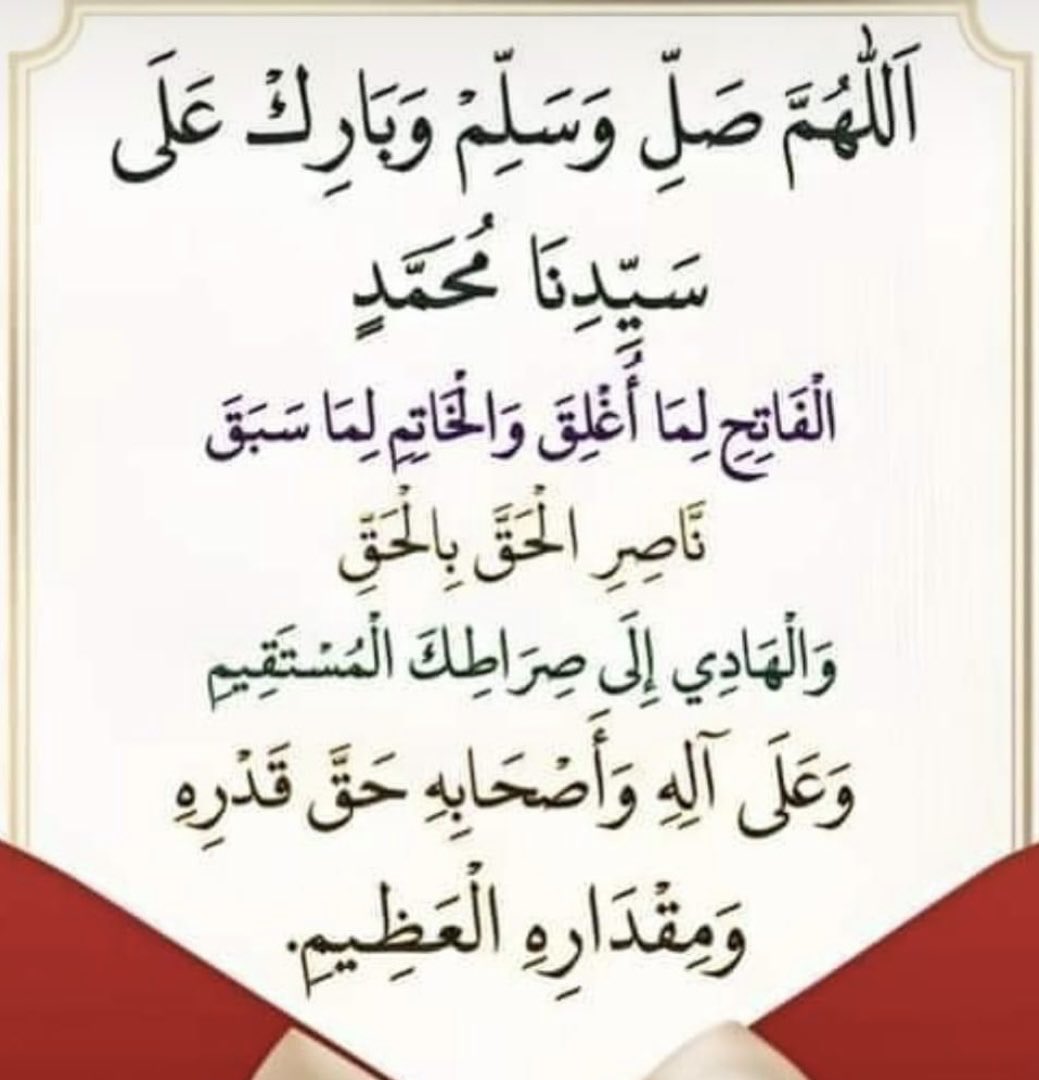 اَللّٰهُمَّ صَلِّ وَسَلِّمْ وَبَارِكْ عَلَى
سَيِّدِنَا مُحَمَّدٍ
الْفَاتِحِ لِمَا أُغْلِقَ وَالْخَاتِمِ لِمَا سَبَقَ
نَّاصِرِ الْحَقَّ بِالْحَقِّ
وَالْهَادِي إِلَى صِرَاطِكَ الْمُسْتَقِيمِ
وَعَلَى آلِهِ وَأَصْحَابِهِ حَقَّ قَدْرِهِ
وَمِقْدَارِهِ الْعَظِيمِ.